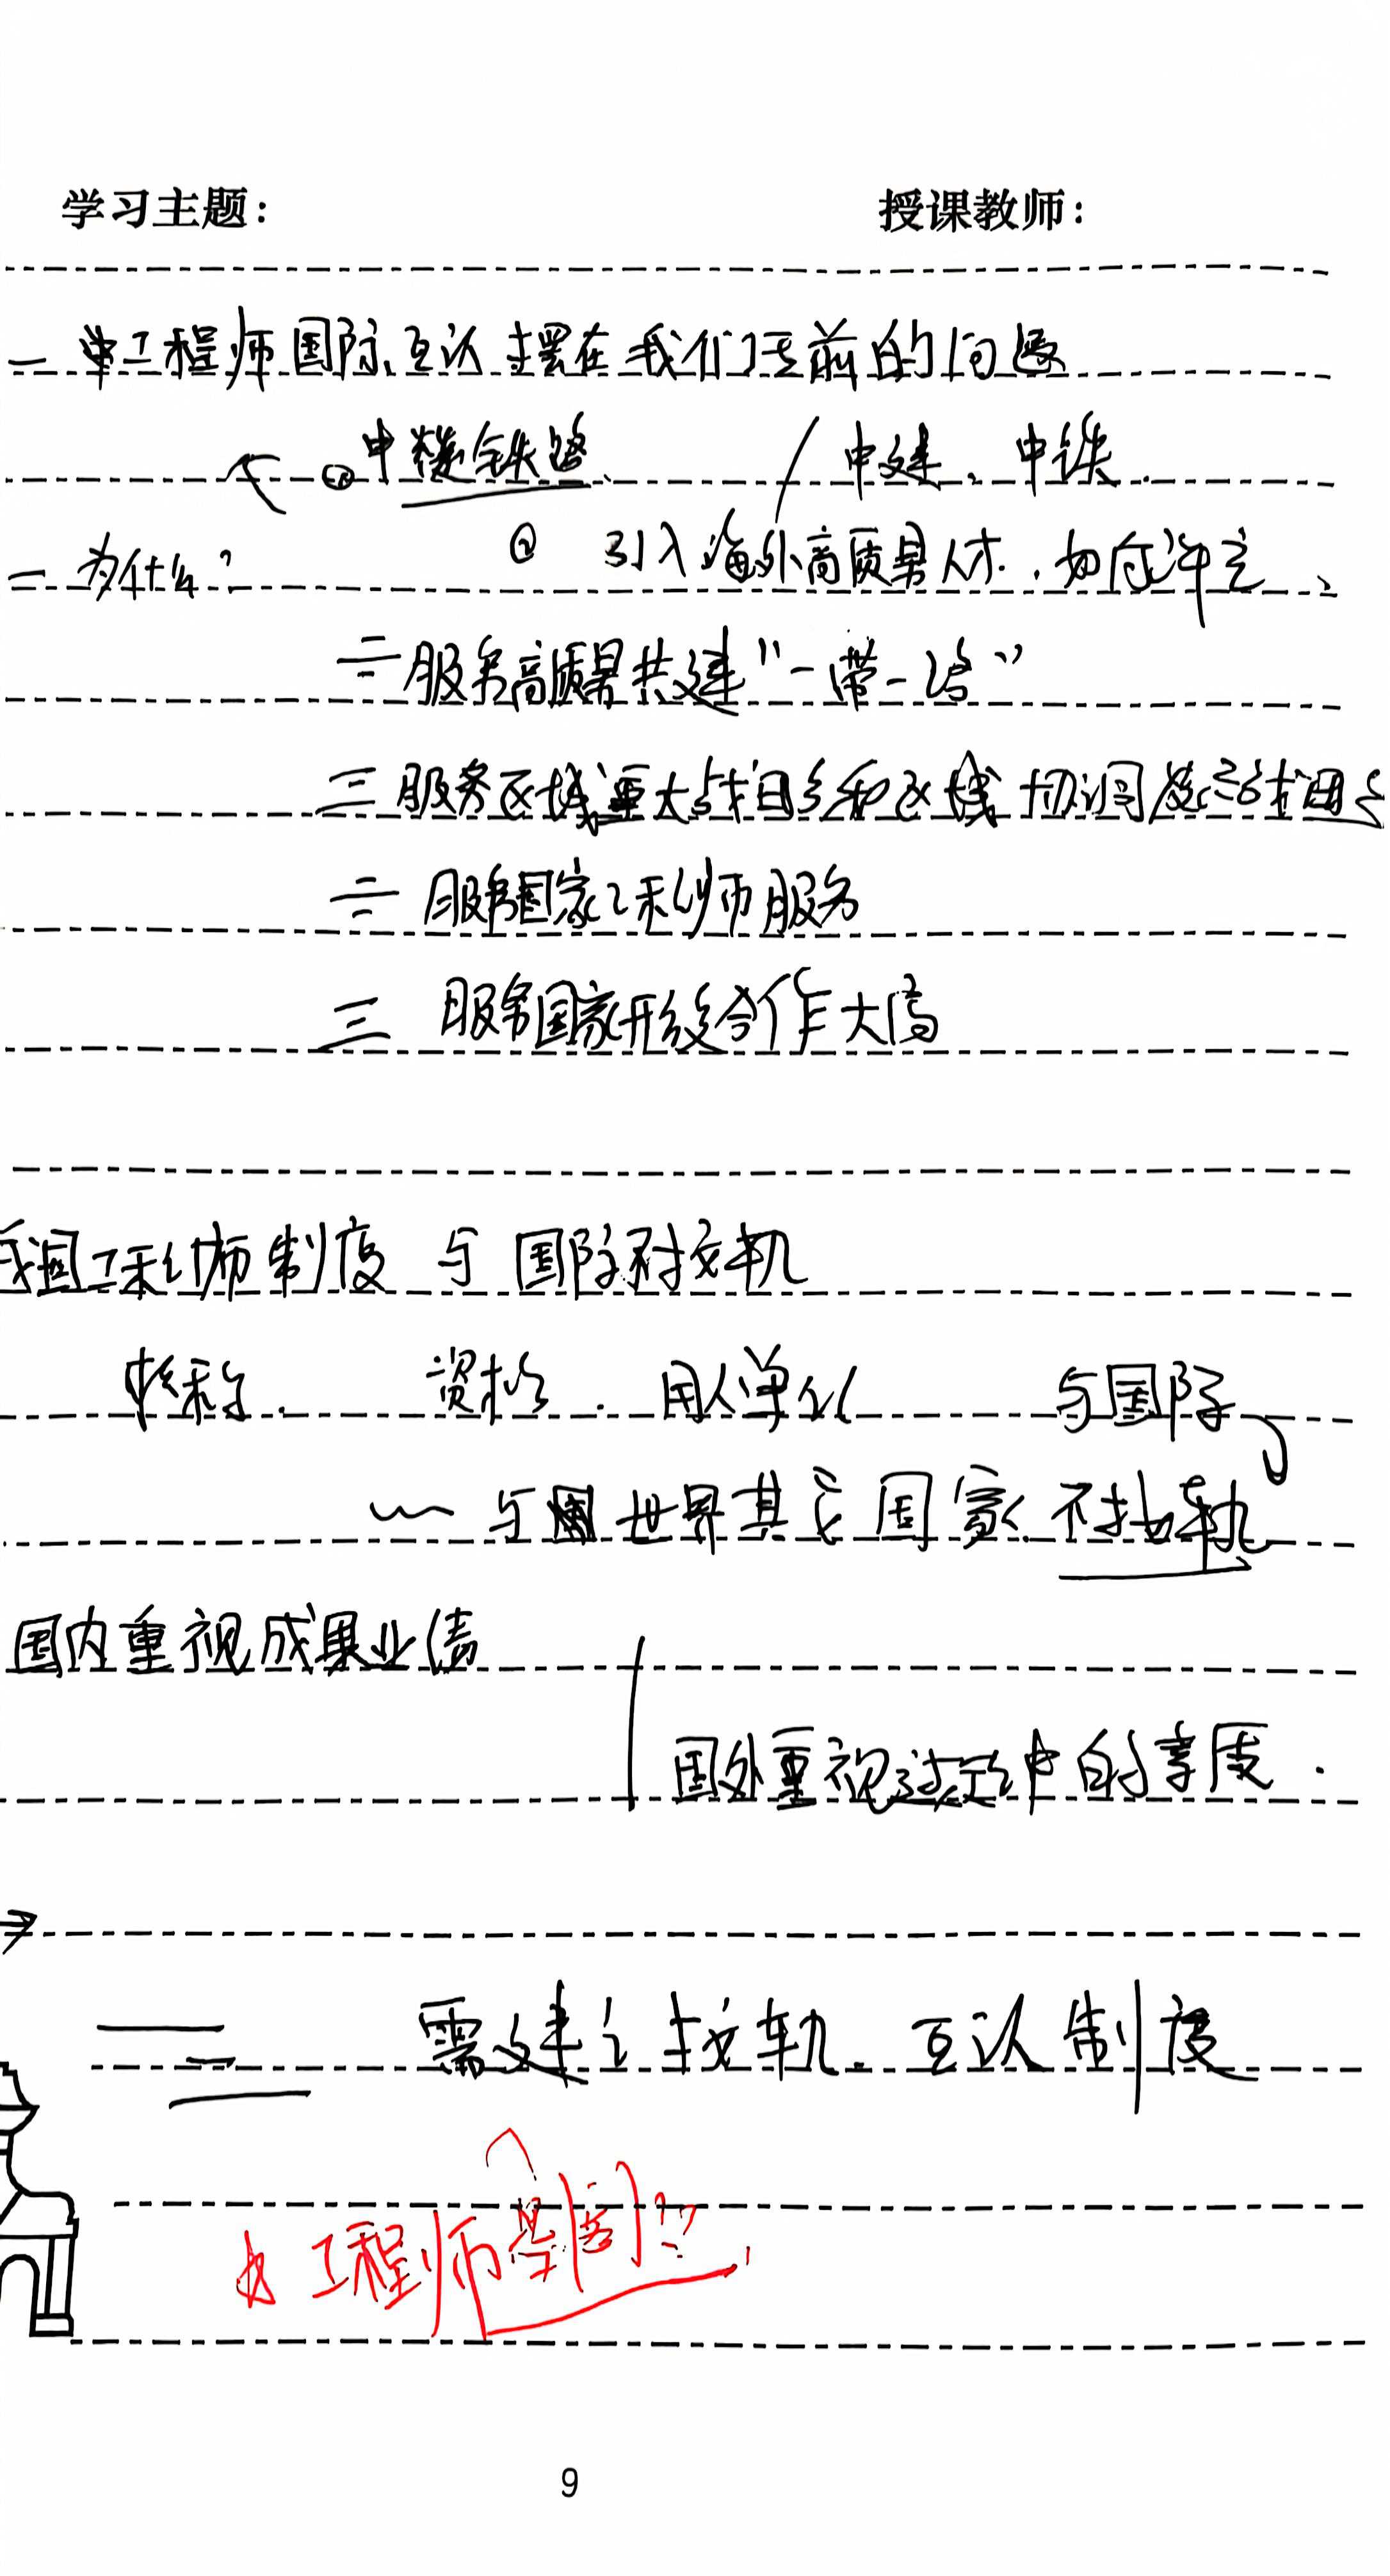 学习主题： 授课教师：
工程师国际互认 摆在我们面前的问题
中 铁路 中建、中铁
为什么？ ② 引入海外高质量人才，如何评定
服务高质量共建“一带一路”
三 服务区域重大战 和区域协调发 战
服务国家工程师服务
三 服务国家 合作大局
我国工程师制度 与 国际 接轨
职称 资格 用人单位 与国际
与 世界其它国家 不接轨
国内重视成果业绩
国外重视过程中的
需建立接轨、互认制度
工程师
9